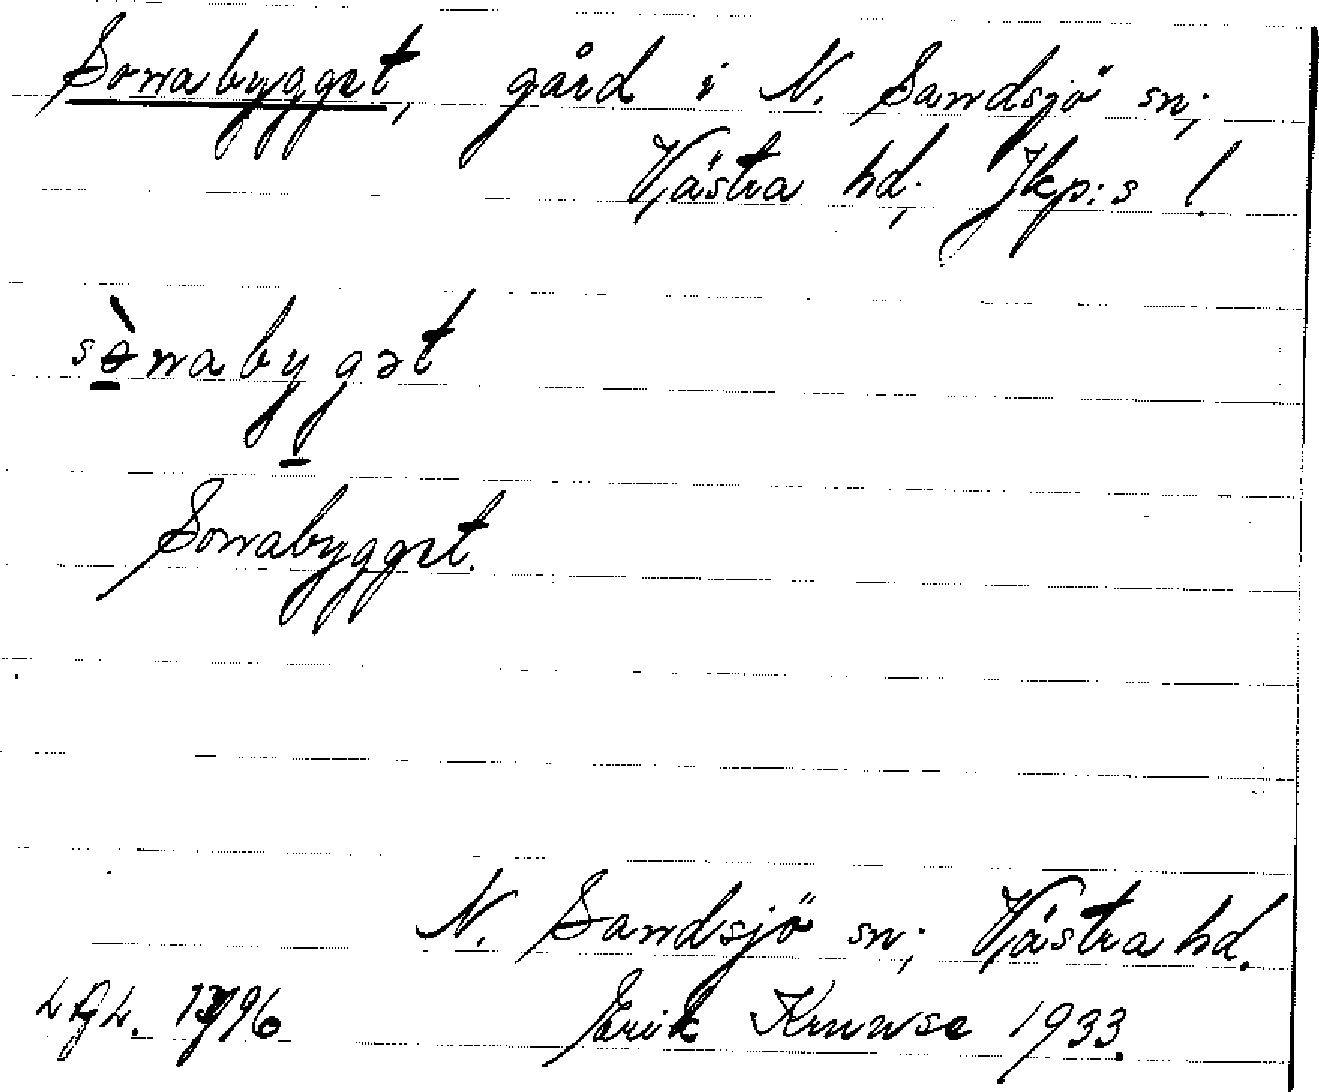 Sonnabygget, gård i N. Sandsjö sn;
Västra hd; Jkp:s l.
Sonnabygget.
N. Sandsjö sn; Västra hd.
Erik Kruuse 1933.